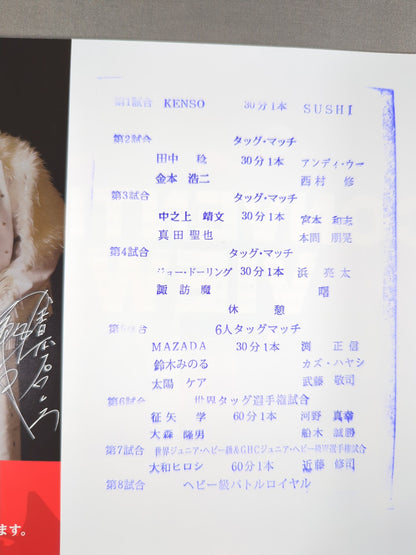 第1試合 KENSO 30分1本 SUSHI
第2試合 タッグ・マッチ
田中 稔 30分1本 アンディ・ウー
金本 浩二 西村 修
第3試合 タッグ・マッチ
中之上 靖文 30分1本 宮本 和志
真田 聖也 本間 朋晃
第4試合 タッグ・マッチ
ジョー・ドーリング 30分1本 浜 亮太
諏訪魔 曙
休 憩
第5試合 6人タッグマッチ
MAZADA 30分1本 渕 正信
鈴木みのる カズ・ハヤシ
太陽 ケア 武藤 敬司
第6試合 世界タッグ選手権試合
征矢 学 60分1本 河野 真幸
大森 隆男 船木 誠勝
第7試合 世界ジュニア・ヘビー級&GHCジュニア・ヘビー級選手権試合
大和ヒロシ 60分1本 近藤 修司
第8試合 ヘビー級バトルロイヤル
ます。